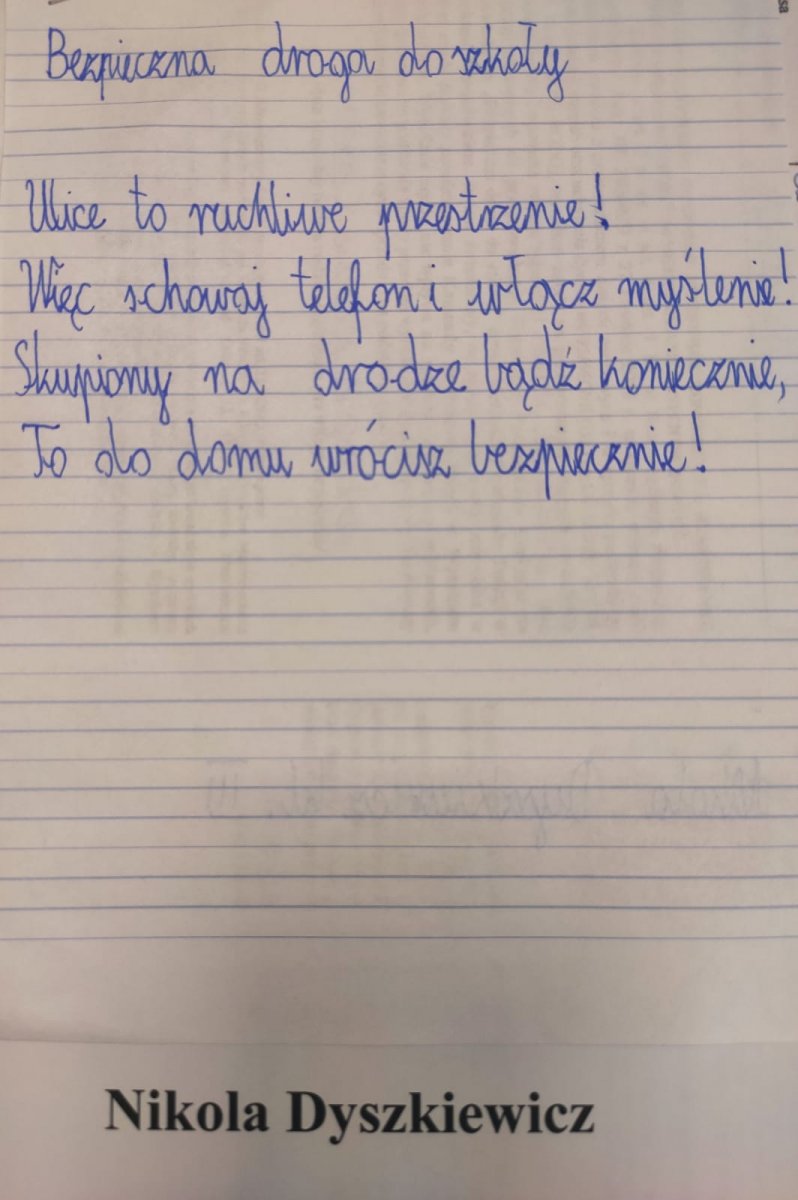 Bezpieczna droga do szkoły
Ulice to ruchliwe przestrzenie!
Więc schowaj telefon i włącz myślenie!
Skupiony na drodze bądź koniecznie,
To do domu wrócisz bezpiecznie!
Nikola Dyszkiewicz